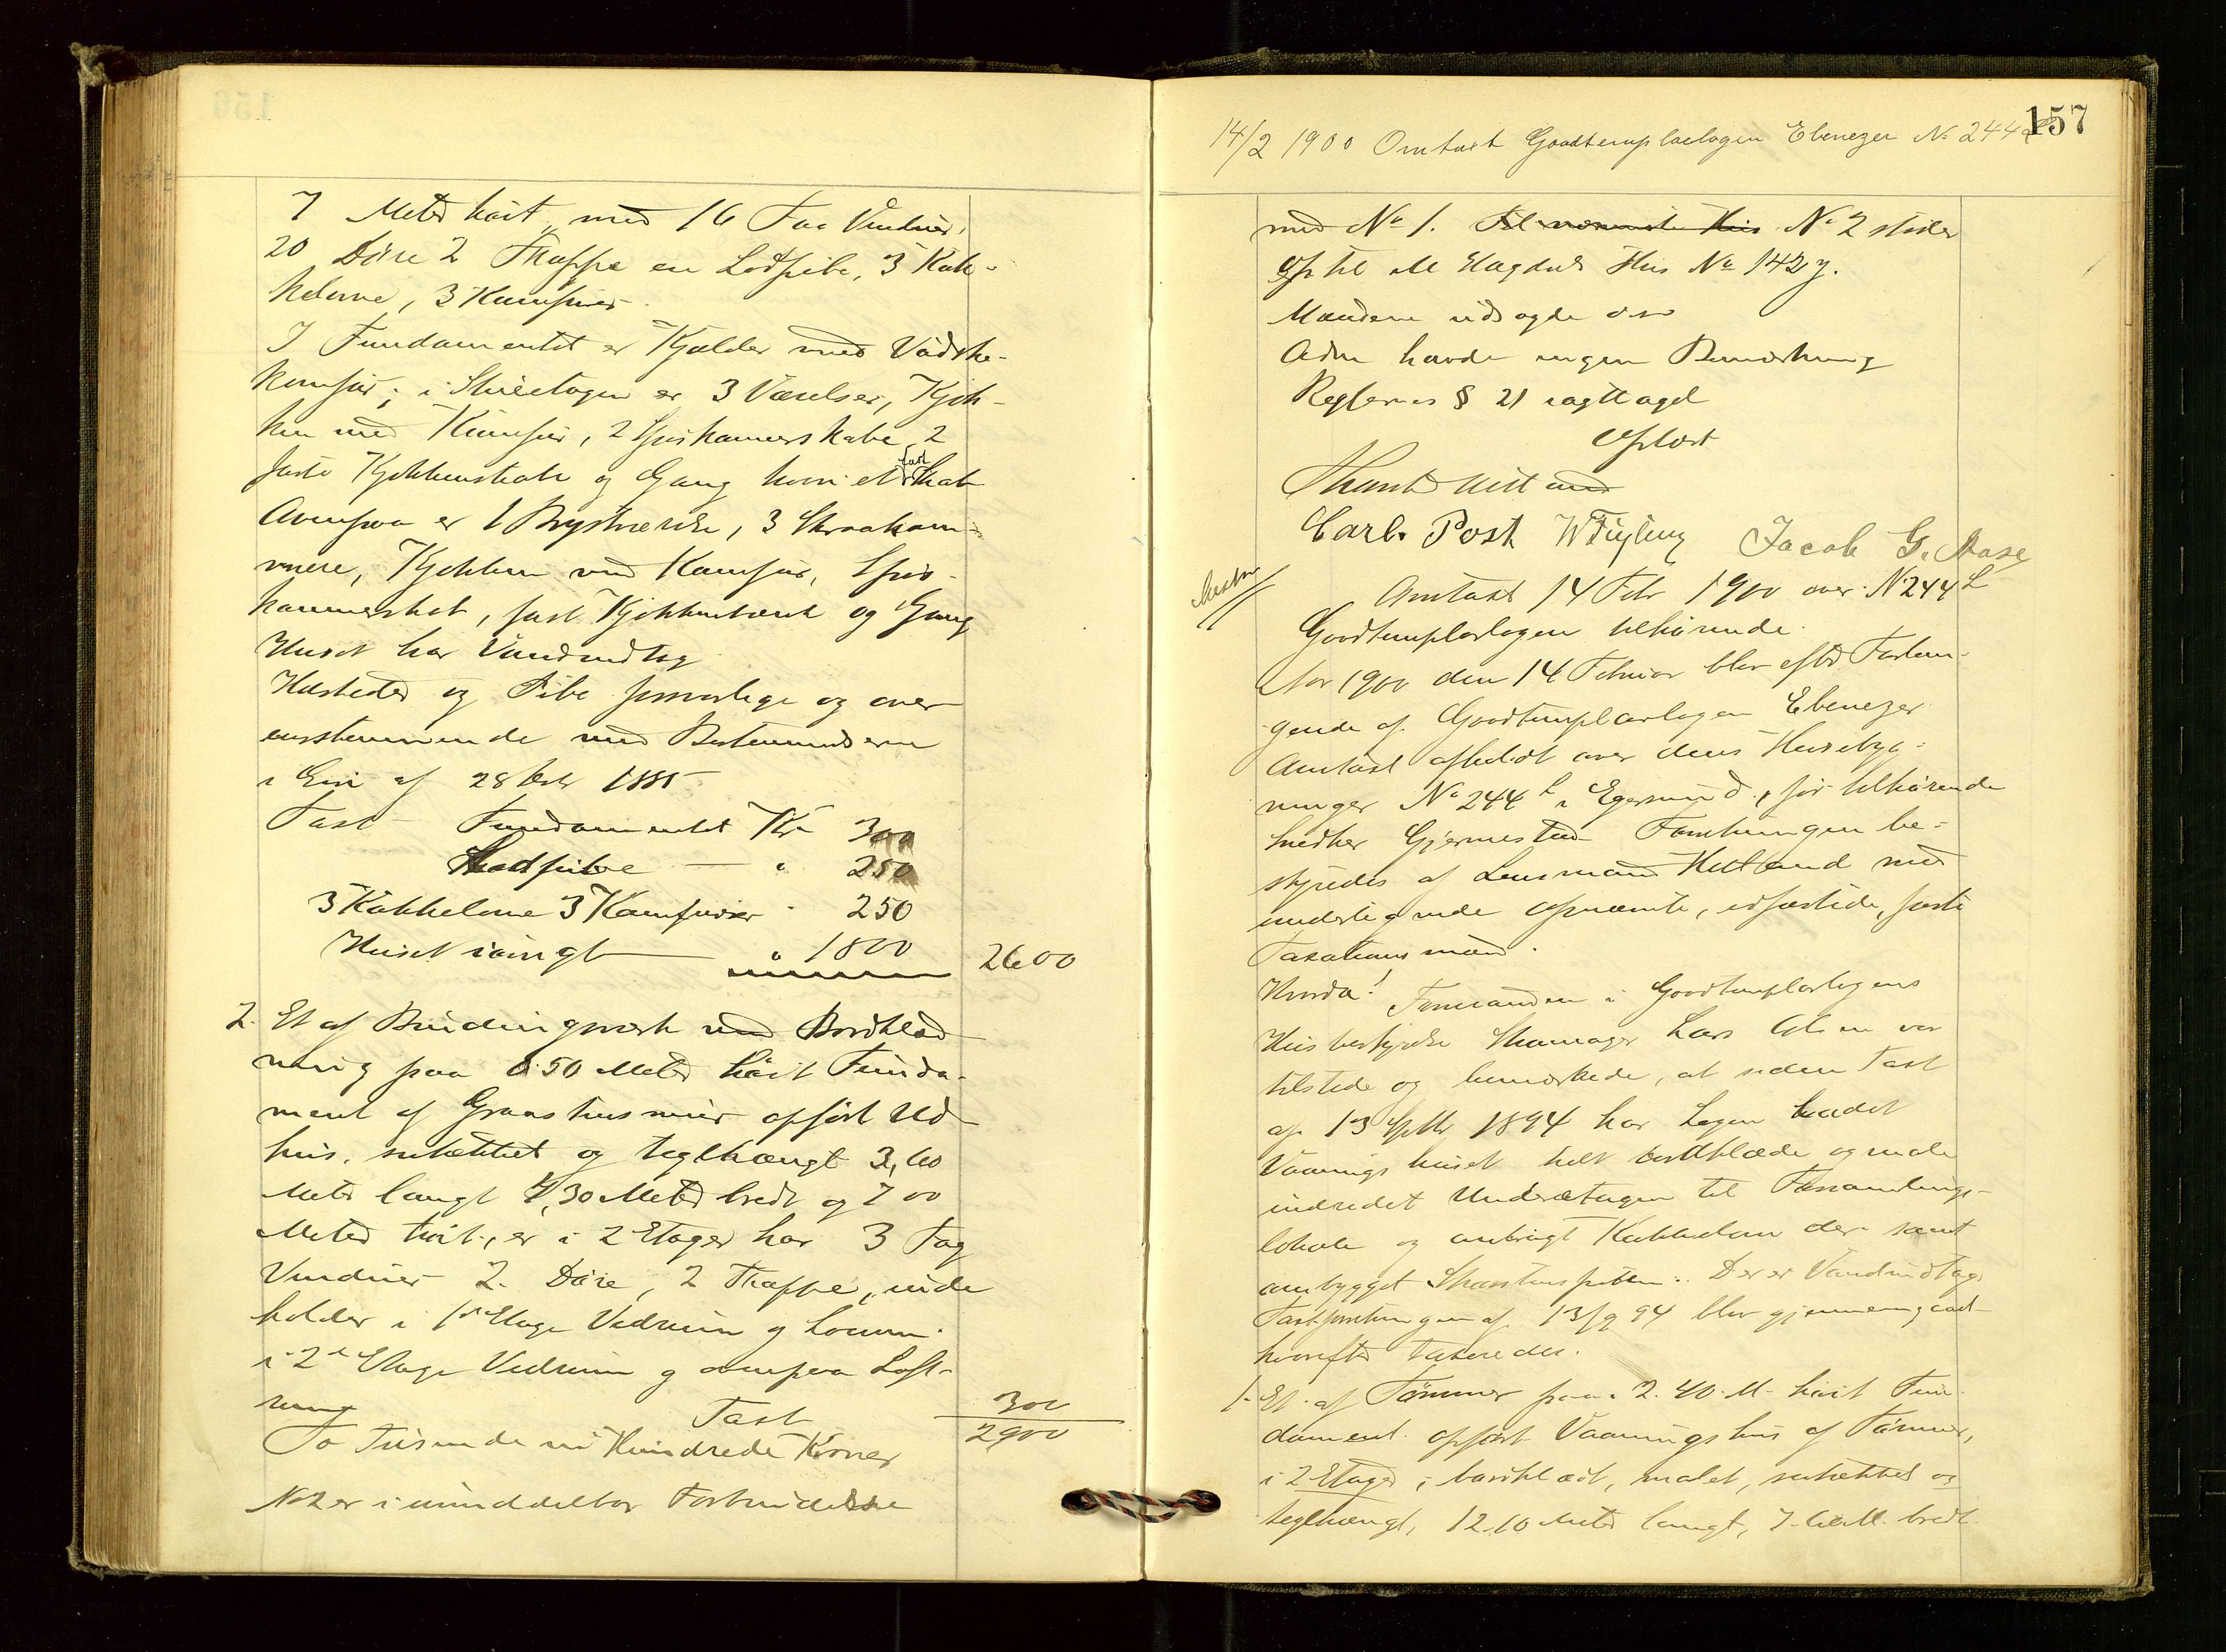 7 Meter høit, med 16 Fag Vinduer,
20 Døre 2 Trappe en Lodpibe, 3 Kak-
kelovne, 3 Kamfurer
I Fundamentet er Kjelder med Vadske-
komfur; i Stueetagen er 3 Værelser, Kjøk-
ken med Kamfur, 2 Spiskammerskabe, 2
faste Kjøkkenskabe og Gang hvori et fast Skab
Ovenpaa er 1 Brystværelse, 3 Skraakam-
mere, Kjøkken med Kamfur, Spis-
kammerskab, fast Kjøkkenbænk og Gang
Huset har Vandindtag
Ildsteder og Pibe forsvarlige og over-
ensstemmende med Bestemmelserne
i af 28 1885
Taxt Fundamentet Kr 300
Lodpibe — " 250
3 Kakkelovne 3 Kamfurer " 250
Huset iøvrigt — " 1800 2600
2. Et af Bindingsværk med Bordklæd-
ning paa 0.50 Meter høit Funda-
ment af Graastensmur opført Ud-
hus, sutækket og teglhængt 3,60
Meter langt 4,30 Meter bredt og 7 00
Meter høit, er i 2 Etager har 3 Fag
Vinduer 2 Døre, 2 Trappe, inde
holder i 1ste Etage Vedrum og Locum
i 2den Etage Vedrum og ovenpaa Loft-
rum Taxt 300
To Tusinde ni Hundrede Kroner 2900
No 2 er i umiddelbar Forbindelse
157
14/2 1900 Omtaxt Goodtemplarlogen Ebenezer No 244 L
med No 1. No 2 støder
op til M Hus No 142 y.
Mændene udsagde
Adm havde ingen Bemærkning
Reglernes § 21 iagttaget
Oplæst
Hetland
Carl. Post W Fugling Jacob G. Aase
Omtaxt 14 Febr 1900 over No 244 L
Goodtemplarlogen tilhørende.
Aar 1900 den 14 Februar blev efter Forlan-
gende af Goodtemplarlogen Ebenezer
Omtaxt afholdt over dens Husebyg-
ninger No 244 L i Egersund, før tilhørende
Snedker Gjermestad Forretningen be-
styredes af Lensmand Hetland med
underteg nede opnævnte, edfæstede, faste
Taxationsmænd.
Hvorda! Formanden i Goodtemplarlogens
Husbestyrelse Skomager Lars Olsen var
tilstede og bemærkede, at siden Taxt
af 13 Septbr 1894 har Logen ladet
Vaaningshuset helt bordklæde og male
indredet Underetagen til Forsamlings-
lokale og anbragt Kakkelovn der samt
ombygget Skorstenspiben. Der er Vandindtag
Taxtforretningen af 13/9 94 blev gjennemgaaet
hvorefter taxeredes.
1. Et af Tømmer paa 2.40 M høit Fun-
dament opført Vaaningshus af Tømmer,
i 2 Etager, bordklædt, malet, sutækket og
teglhængt, 12.10 Meter langt, 7. M. bredt